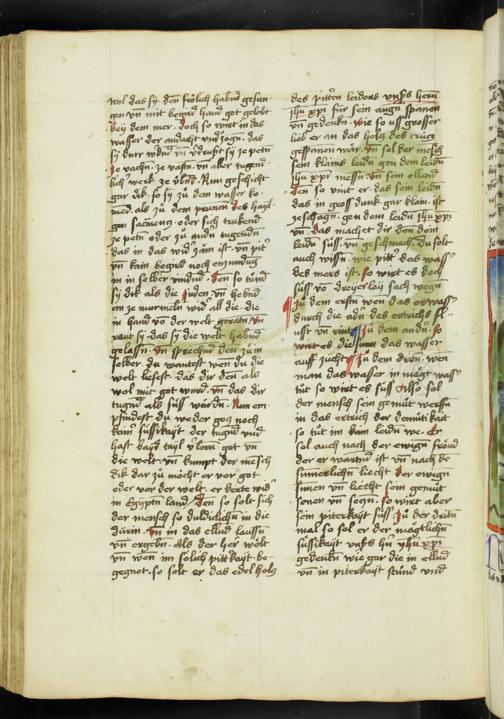 wol das sy den frölich habnd gesun
gen vn mit begird hand got gelobt
bey dem mer. doch so wirt in das
wasser der andacht das
sy durr vn vdrusst sy ze petn
ze vastn vn aller tugent
lich werk ze vbnd. Nun geschicht
gar dik so sy zu dem wasser ko
mend als zu dem prunen des hayl
gen sacmentz oder sich
ze petn oder zu andn tugendn
das in das wirt zam ist vn pitt
vn kain begird noch enzundug
in in selber vindnd. den so tund
sy dik als die Juden vn hebnd
an ze murmeln wid als die. die
in hand vo der welt geratn vn
raut sy das sy die welt habnd
gelassn. vn sprechnd den zum
selber. du wantest wen du die
welt liesest das dir den als
wol mit got wurd. vn das dir
tugnd als süss würdn. Nun em
pfindest du weder got noch
kain süssikayt der tugnd vnd
hast bayd tayl vlorn got vn
die welt. vn kumpt der mesch
dik dar zu möcht er vor got
oder vor der welt er kerte wid
in Egyptn land. den so solt sich
der mensch so duldiclichn in die
vn in das ellend laussn
vn ergebn als der her wölt
vn wen im sölich pittkayt be
gegnot. so solt er das edel holtz
des pittern leidens vnsers hern
ihu xpi für sein augn spanen
vn gedenkn wie so uss grosser
lieb er an das holtz des crütz
gespanen wär. vn sol der mesch
sein klains leidn gen dem leidn
ihu xpi messn vn sein ellend
den so vint er das sein leidn
das in gross dunk gar klain ist
ze schatzn gen dem leidn ihu xpi
vn das machet dir den dein
leidn süss vn geschmach. Du solt
auch wissn wie pitt das wass
des mers ist. so wirt es doch
süss vo dreyerlay sach wegn
zu dem erstn wen das wass
durch die adn des ertrichs fl
usst vn Zu dem andn so
wirt es süss das wasser
auff zucht Zu dem dritn wen
man das wasser in wass
tut so wirt es süss. Also sol
der mensch sein gemüt werffn
in das ertrich der demütikait
so tut im kain leidn we. Er
sol auch nach der ewign fröwd
der er wartnd ist vn nach be
sinnerlichn liecht der ewign
sunen vn liecht sein gemüt
senen vn segn. so wirt aber
sein pitterkayt süss. Zu der dritn
mal so sol er der mäglichn
süssikayt vnsers hn ihu xpi
gedenkn wie gar die in ellend
vn in piterkayt stund vnd